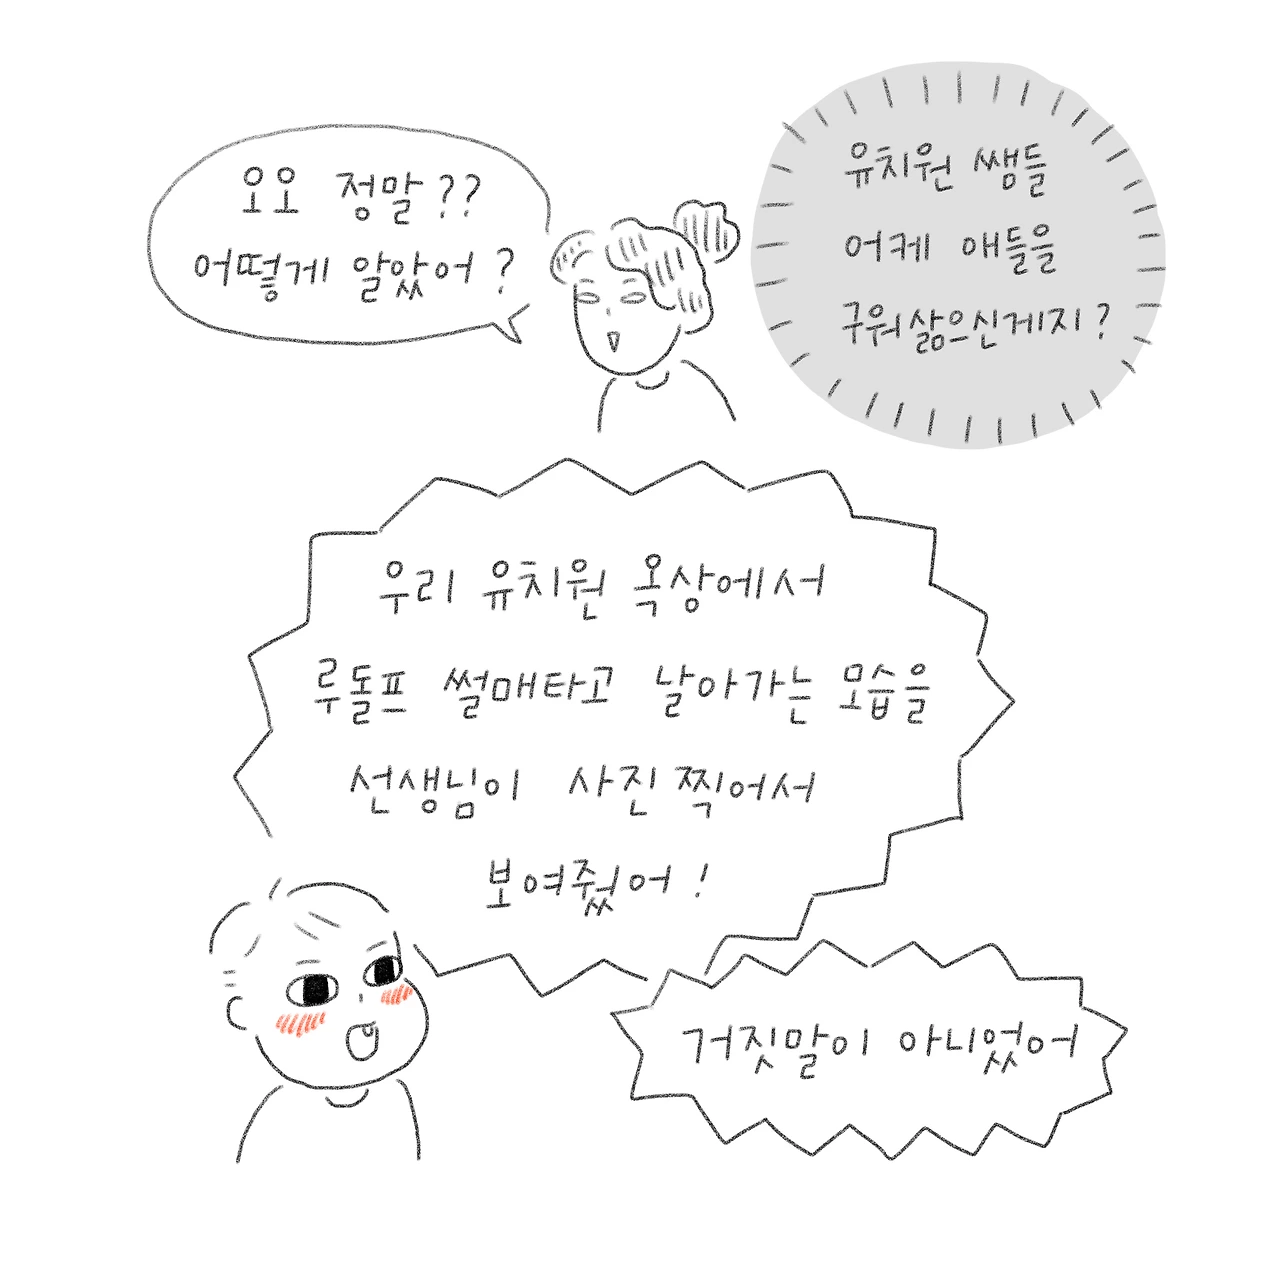 오오 정말??
어떻게 알았어?
유치원 쌤들
어케 애들을
구워삶으신게지?
우리 유치원 옥상에서
루돌프 썰매타고 날아가는 모습을
선생님이 사진찍어서
보여줬어!
거짓말이 아니었어